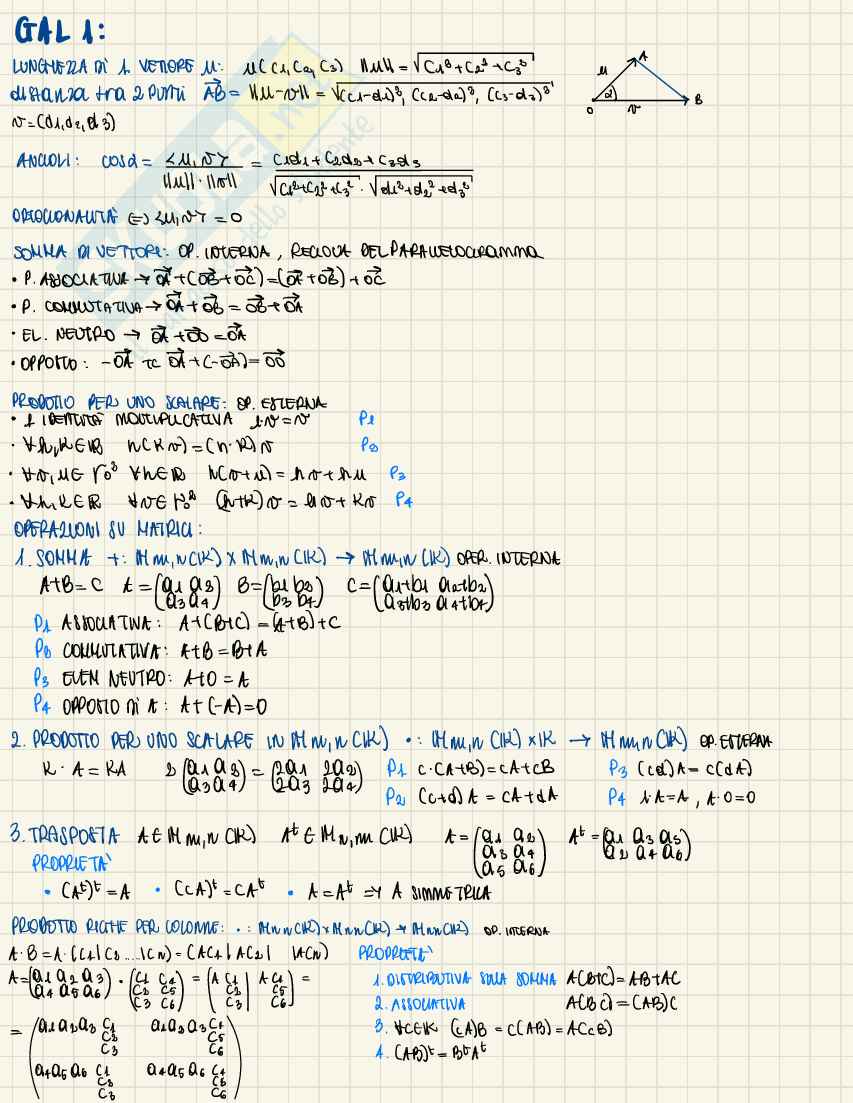 GAL 1:
LUNGHEZZA DI 1 VETTORE u: u(c1,c2,c3) ||u|| = √(c1²+c2²+c3²)
distanza tra 2 punti AB = ||u-v|| = √(c1-d1)², (c2-d2)², (c3-d3)²
v=(d1,d2,d3)
u A α O v B
ANGOLI: cosα = <u,v> / ||u||·||v|| = c1d1+c2d2+c3d3 / √(c1²+c2²+c3²) · √(d1²+d2²+d3²)
ORTOGONALITÀ ⇔ <u,v> = 0
SOMMA DI VETTORI: OP. INTERNA, REGOLA DEL PARALLELOGRAMMA
• P. ASSOCIATIVA → OA+(OB+OC)=(OA+OB)+OC
• P. COMMUTATIVA → OA+OB = OB+OA
• EL. NEUTRO → OA+OO=OA
• OPPOSTO: -OA tc OA+(-OA)=OO
PRODOTTO PER UNO SCALARE: OP. ESTERNA
• 1 IDENTITÀ MOLTIPLICATIVA 1·v=v P1
• ∀h,k∈ℝ h(kv)=(h·k)v P2
• ∀v,u∈ V₀³ ∀h∈ℝ h(v+u)=hv+hu P3
• ∀h,k∈ℝ ∀v∈V₀³ (h+k)v=hv+kv P4
OPERAZIONI SU MATRICI:
1. SOMMA +: Mm,n(K) x Mm,n(K) → Mm,n(K) OPER. INTERNA
A+B=C A=(a1 a2 B=(b1 b2 C=(a1+b1 a2+b2
a3 a4) b3 b4) a3+b3 a4+b4)
P1 ASSOCIATIVA: A+(B+C)=(A+B)+C
P2 COMMUTATIVA: A+B=B+A
P3 ELEM NEUTRO: A+0=A
P4 OPPOSTO DI A: A+(-A)=0
2. PRODOTTO PER UNO SCALARE IN Mm,n(K) •: Mm,n(K) x K → Mm,n(K) OP. ESTERNA
K·A=KA 2(a1 a2 = (2a1 2a2 P1 c·(A+B)=cA+cB P3 (cd)A=c(dA)
a3 a4) 2a3 2a4) P2 (c+d)A=cA+dA P4 1·A=A, A·0=0
3. TRASPOSTA A∈Mm,n(K) Aᵗ∈Mn,m(K) A=(a1 a2 Aᵗ=(a1 a3 a5
a3 a4 a2 a4 a6)
a5 a6)
PROPRIETÀ
• (Aᵗ)ᵗ=A • (cA)ᵗ=cAᵗ • A=Aᵗ ⇒ A SIMMETRICA
PRODOTTO RIGHE PER COLONNE: •: Mn,n(K)xMn,n(K)→Mn,n(K) OP. INTERNA
A·B=A·(C1|C2....|Cn)=(AC1|AC2| |ACn) PROPRIETÀ
A=(a1 a2 a3 · (c1 c4 = (A c1 | A c4 =
a4 a5 a6) c2 c5 c2 c5
c3 c6) c3 c6)
1. DISTRIBUTIVA SULLA SOMMA A(B+C)=AB+AC
2. ASSOCIATIVA A(BC)=(AB)C
3. ∀c∈K (cA)B=c(AB)=A(cB)
4. (AB)ᵗ=BᵗAᵗ
= (a1 a2 a3 c1 a1 a2 a3 c4
c2 c5
c3 c6
a4 a5 a6 c1 a4 a5 a6 c4
c2 c5
c3 c6)